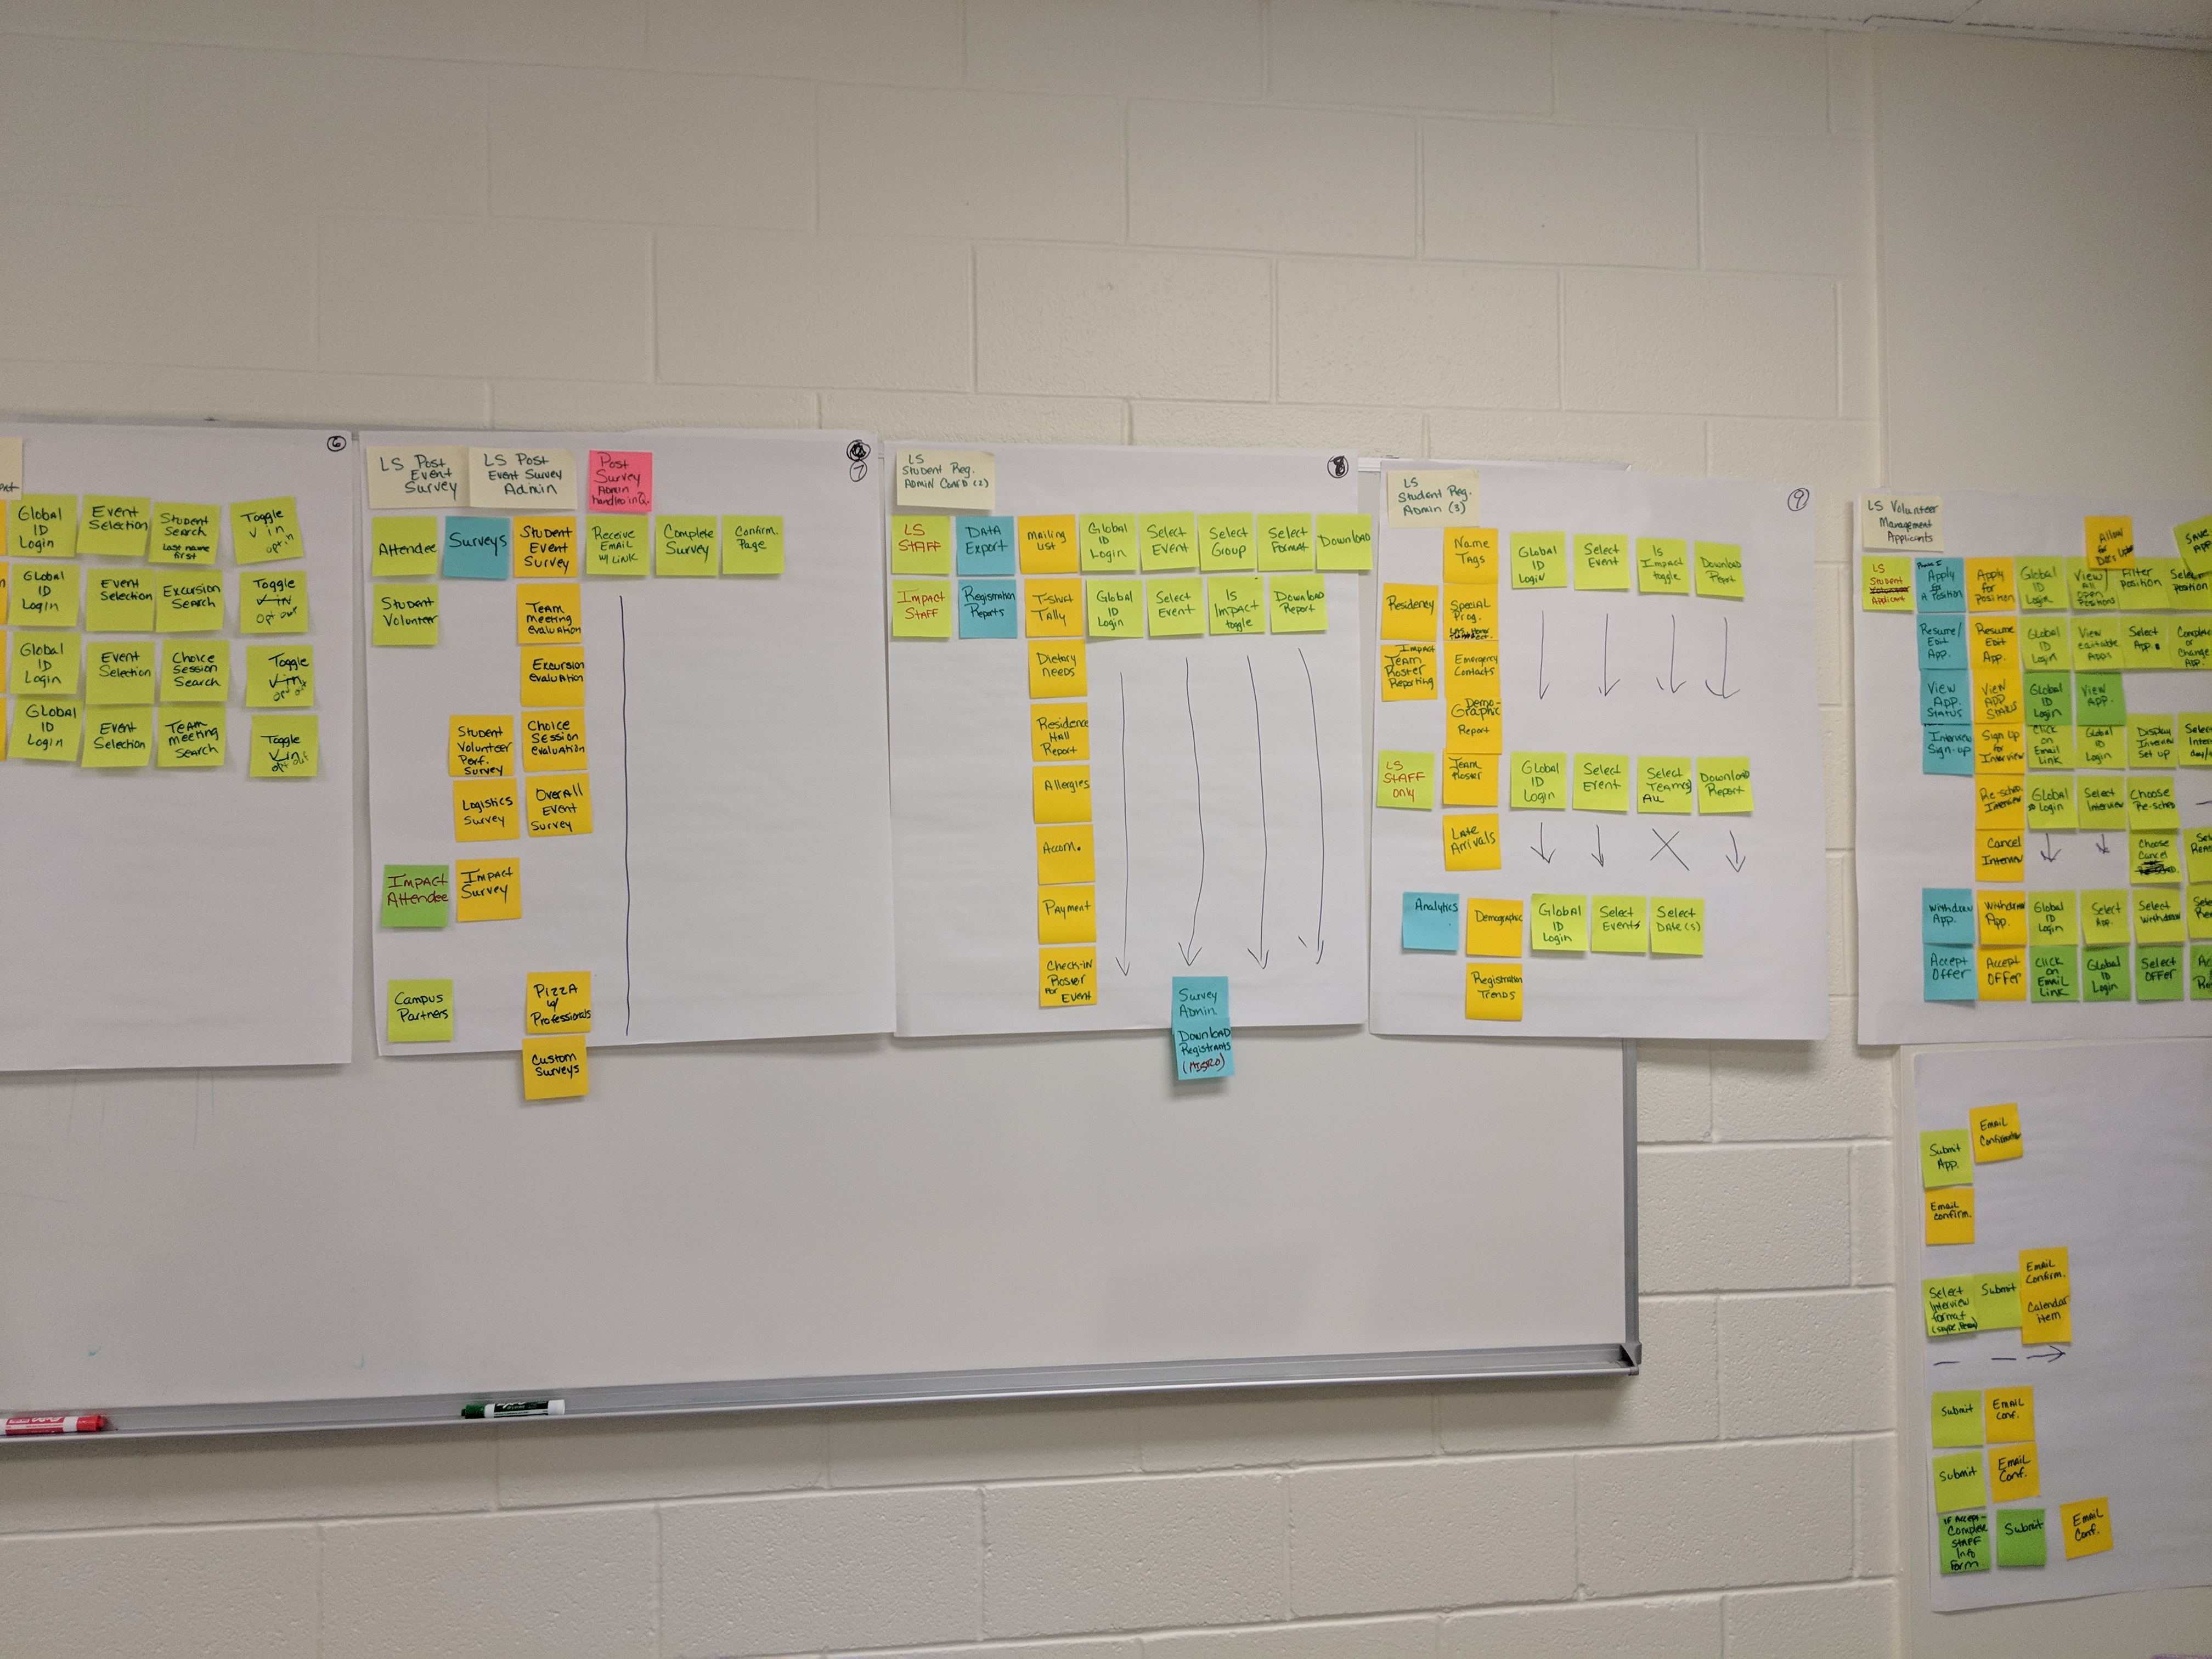 6
Global
ID
Login
Event
Selection
Student
Search
Last name
first
Toggle
in
opt in
Global
ID
Login
Event
Selection
Excursion
Search
Toggle
IN
opt out
Global
ID
Login
Event
Selection
Choice
Session
Search
Toggle
in
Global
ID
Login
Event
Selection
Team
Meeting
Search
Toggle
in
opt out
7
LS Post
Event
Survey
LS Post
Event Survey
Admin
Post
Survey
Admin
handled in Q.
Attendee
Surveys
Student
Event
Survey
Receive
Email
w/ Link
Complete
Survey
Confirm.
Page
Student
Volunteer
Team
Meeting
Evaluation
Excursion
Evaluation
Student
Volunteer
Perf.
Survey
Choice
Session
Evaluation
Logistics
Survey
Overall
Event
Survey
Impact
Attendee
Impact
Survey
Campus
Partners
Pizza
w/
Professionals
Custom
Surveys
8
LS
Student Reg.
Admin Cont'd (2)
LS
STAFF
DATA
Export
Mailing
List
Global
ID
Login
Select
Event
Select
Group
Select
Format
Download
Impact
Staff
Registration
Reports
T-Shirt
Tally
Global
ID
Login
Select
Event
Is
Impact
toggle
Download
Report
Dietary
Needs
Residence
Hall
Report
Allergies
Accom.
Payment
Check-in
Roster
For
Event
Survey
Admin
Download
Registrants
9
LS
Student Reg.
Admin (3)
Name
Tags
Global
ID
Login
Select
Event
Is
Impact
toggle
Download
Report
Residency
Special
Prog.
Impact
Team
Roster
Reporting
Emergency
Contacts
Demo-
Graphic
Report
LS
STAFF
only
Team
Roster
Global
ID
Login
Select
Event
Select
Team(s)
ALL
Download
Report
Late
Arrivals
Analytics
Demographic
Global
ID
Login
Select
Events
Select
Date(s)
Registration
Trends
LS Volunteer
Management
Applicants
Allow
for
SAVE
App.
LS
Student
Applicant
Phase I
Apply
for
A Position
Apply
for
Position
Global
ID
Login
View
All
open
Positions
Filter
Position
Select
Position
Resume/
Edit
App.
Resume
Edit
App.
Global
ID
Login
View
editable
Apps
Select
App.
Complete
or
Change
App.
View
App.
Status
View
App
Status
Global
ID
Login
View
App.
Interview
Sign-up
Sign Up
for
Interview
Click
on
Email
Link
Global
ID
Login
Display
Interview
Set up
Re-sched.
Interview
Global
ID Login
Select
Interview
Choose
Re-sched
Cancel
Interview
Choose
Cancel
Withdraw
App.
Withdraw
App.
Global
ID
Login
Select
App.
Select
Withdraw
Accept
Offer
Accept
Offer
Click
on
Email
Link
Global
ID
Login
Select
Offer
Submit
App.
Email
Confirmation
Email
Confirm.
Select
Interview
format
Submit
Email
Confirm.
Calendar
item
Submit
Email
Conf.
Submit
Email
Conf.
If Accept-
Complete
Staff
Info
Form
Submit
Email
Conf.